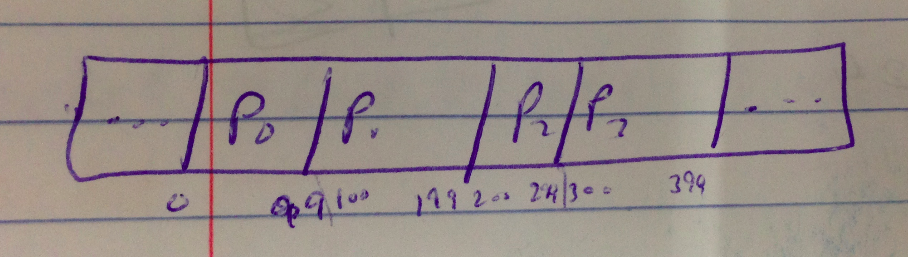 ... P0 P1 P2 P3 ...
0 99 100 199 200 300 399